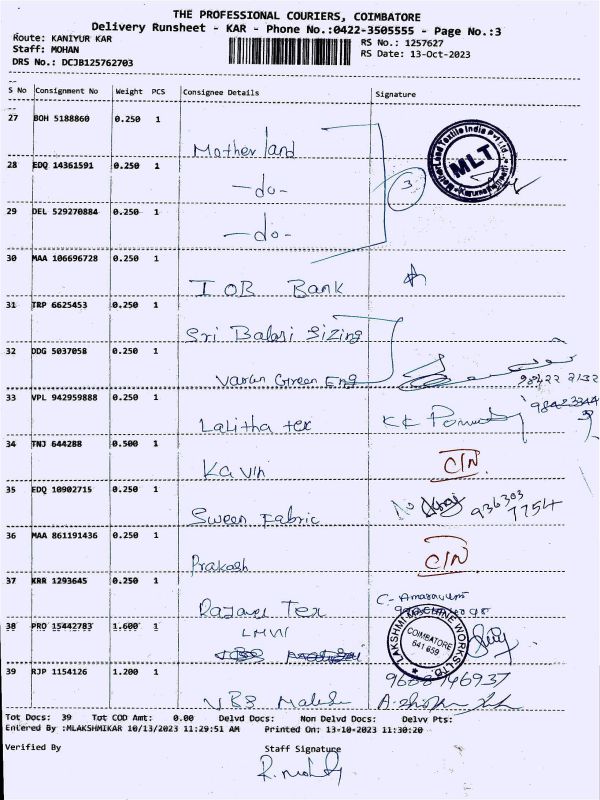 THE PROFESSIONAL COURIERS, COIMBATORE
Delivery Runsheet - KAR - Phone No.:0422-3505555 - Page No.:3
Route: KANIYUR KAR
RS No.: 1257627
Staff: MOHAN
RS Date: 13-Oct-2023
DRS No.: DCJB125762703
S No Consignment No Weight PCS Consignee Details Signature
27 BOH 5188860 0.250 1
Mother land
28 EDQ 14361591 0.250 1
-do-
3
MLT
29 DEL 529270884 0.250 1
-do-
30 MAA 106696728 0.250 1
IOB Bank
31 TRP 6625453 0.250 1
Sri Balaji Sizing
32 DDG 5037058 0.250 1
Varun Green Eng
98422 2132
33 VPL 942959888 0.250 1
Lalitha tex
34 TNJ 644288 0.500 1
Kavin
C/N
35 EDQ 10902715 0.250 1
Sween Fabric
936303
7754
36 MAA 861191436 0.250 1
Prakash
C/N
37 KRR 1293645 0.250 1
Tex
38 PRO 15442783 1.600 1
LMW
LAKSHMI MACHINE WORKS LTD.
COIMBATORE
641 659
39 RJP 1154126 1.200 1
Tot Docs: 39 Tot COD Amt: 0.00 Delvd Docs: Non Delvd Docs: Delvv Pts:
Entered By :MLAKSHMIKAR 10/13/2023 11:29:51 AM Printed On: 13-10-2023 11:30:20
Verified By
Staff Signature